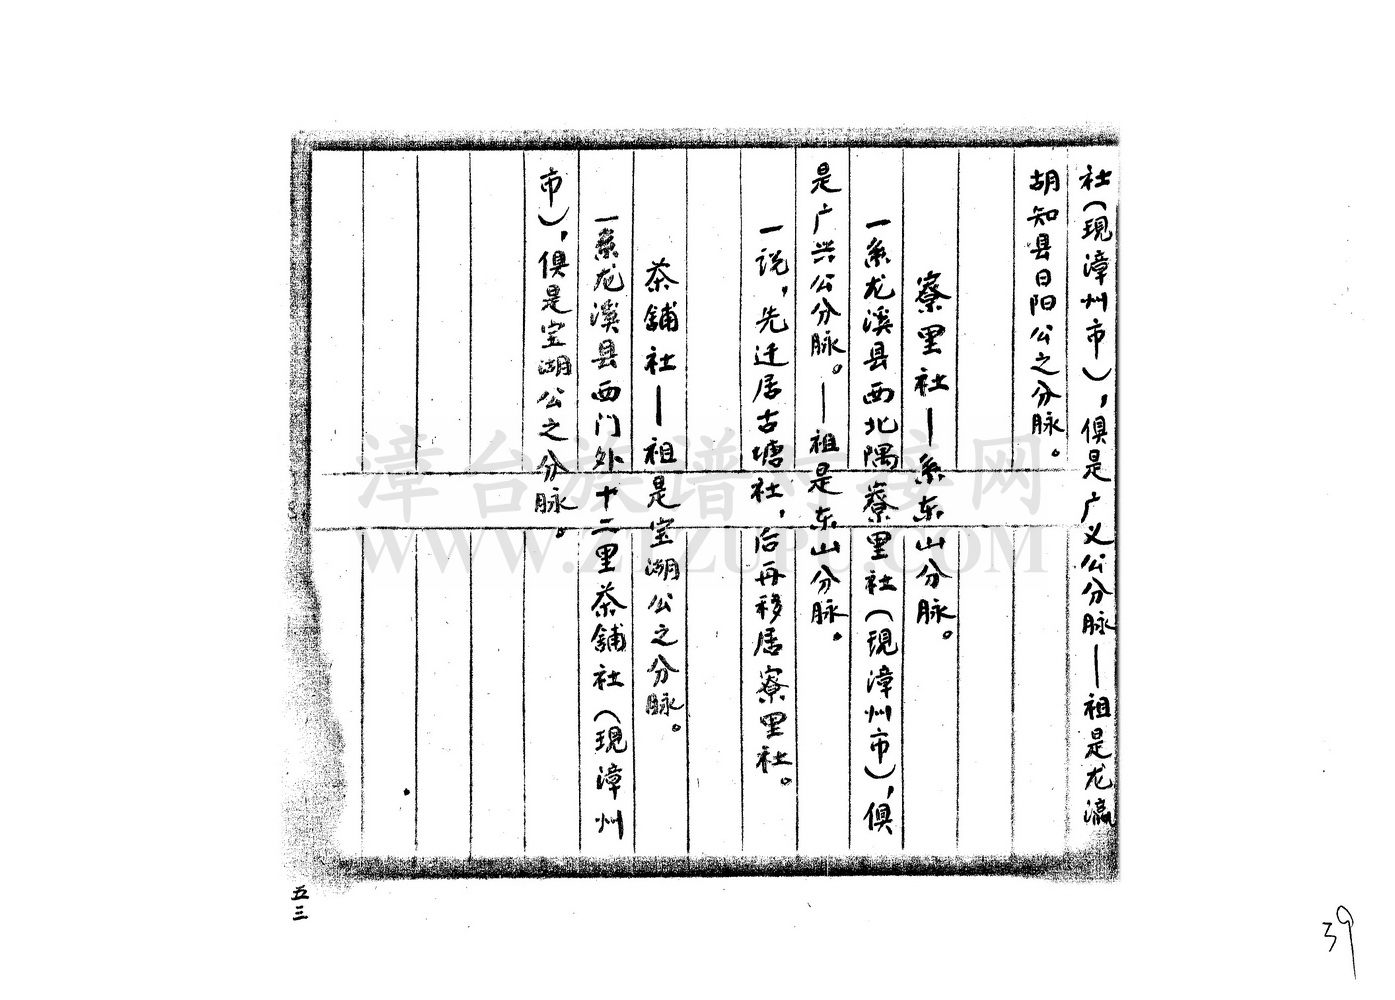 社(现漳州市),俱是广义公分脉—祖是龙瀛
胡知县日阳公之分脉。
寮里社—系东山分脉。
一系龙溪县西北隅寮里社(现漳州市),俱
是广兴公分脉。—祖是东山分脉.
一说,先迁居古塘社,后再移居寮里社。
茶舖社—祖是宝湖公之分脉。
一系龙溪县西门外十二里茶舖社(现漳州
市),俱是宝湖公之分脉。
五三
39
漳台族谱对接网
WWW.ZTZUPU.COM